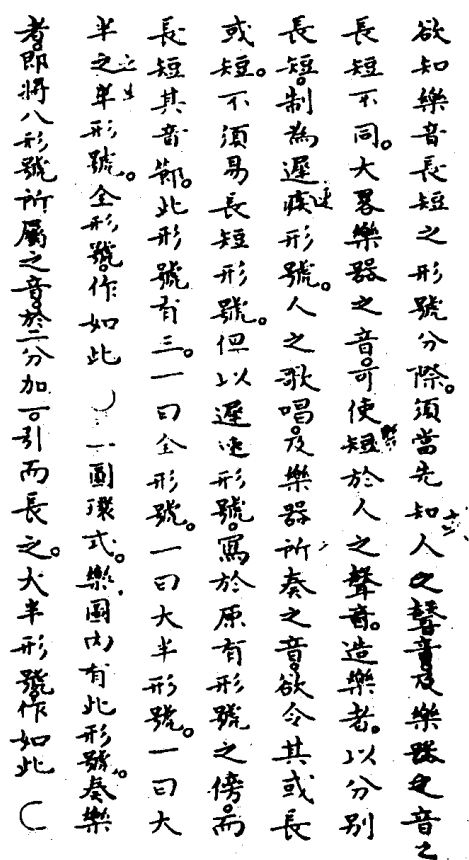 欲知樂音長短之形號分際。須當先知人之聲音。及樂器之音之
長短不同。大畧樂器之音。可使短於人之聲音。造樂者。以分別
長短。制為遲疾速形號。人之歌唱。及樂器所奏之音。欲令其或長
或短。不須易長短形號。但以遲速形號。寫於原有形號之傍。而
長短其音節。此形號有三。一曰全形號。一曰大半形號。一曰大
半之半形號。全形號。作如此 一圓環式。樂圖內有此形號。奏樂
者。即將八形號所屬之音。於二分加一。引而長之。大半形號。作如此